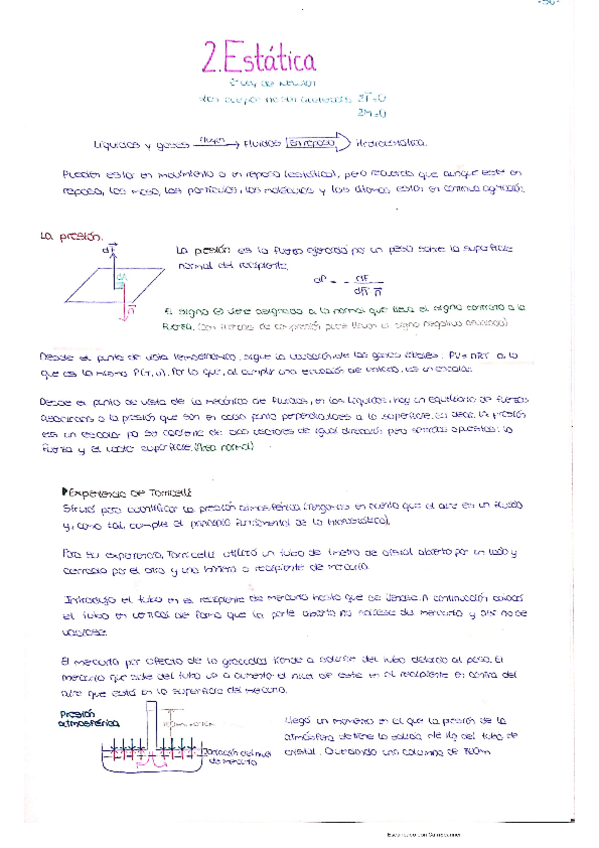 2. Estática
ΣF=0
ΣM=0
Líquidos y gases fluyen Fluidos en reposo Hidroestática.
Pueden estar en movimiento o en reposo (estática), pero recuerda que aunque esté en
reposo, las partículas, las moléculas y los átomos están en continua agitación.
La presión.
dF
La presión es la fuerza ejercida por un peso sobre la superficie
normal del recipiente.
dP = - dF
n
El signo ⊖ viene asignado a la normal que lleva el signo contrario a la
fuerza.
Desde el punto de vista termodinámico, sigue la ecuación de los gases ideales: PV = nRT o lo
que es lo mismo P(T, v). Por lo que, al cumplir una ecuación de estado, es un escalar.
Desde el punto de vista de la mecánica de fluidos, en los líquidos, hay un equilibrio de fuerzas
asociamos a la presión que son en cada punto perpendiculares a la superficie. Es decir, la presión
es un escalar de dos vectores de igual dirección pero sentidos opuestos: la
fuerza y el vector superficie.
Experiencia de Torricelli
Sirvió para cuantificar la presión atmosférica (tengamos en cuenta que el aire es un fluido
y, como tal, cumple el principio fundamental de la hidrostática).
Para su experiencia, Torricelli utilizó un tubo de 1 metro de cristal abierto por un lado y
cerrado por el otro y una cubeta o recipiente de mercurio.
Introdujo el tubo en el recipiente de mercurio hasta que se llenase. A continuación colocó
el tubo en vertical de forma que la parte abierta no saliese del mercurio y así no se
vaciase.
El mercurio por efecto de la gravedad tiende a salirse del tubo debido al peso. El
mercurio que sale del tubo va a aumentar el nivel de este en el recipiente en contra del
aire que está en la superficie del mercurio.
Presión
atmosférica
del nivel
de mercurio
Llegó un momento en el que la presión de la
atmósfera detiene la salida de Hg del tubo de
cristal. Quedando una columna de
Escaneado con CamScanner